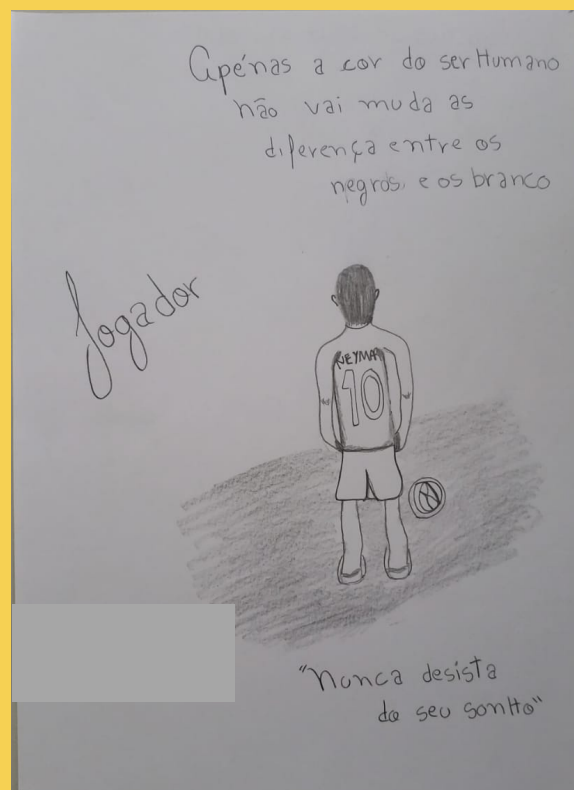 Apénas a cor do ser Humano
não vai muda as
diferença entre os
negros. e os branco
Jogador
NEYMAR
10
"Nunca desista
do seu sonHo"